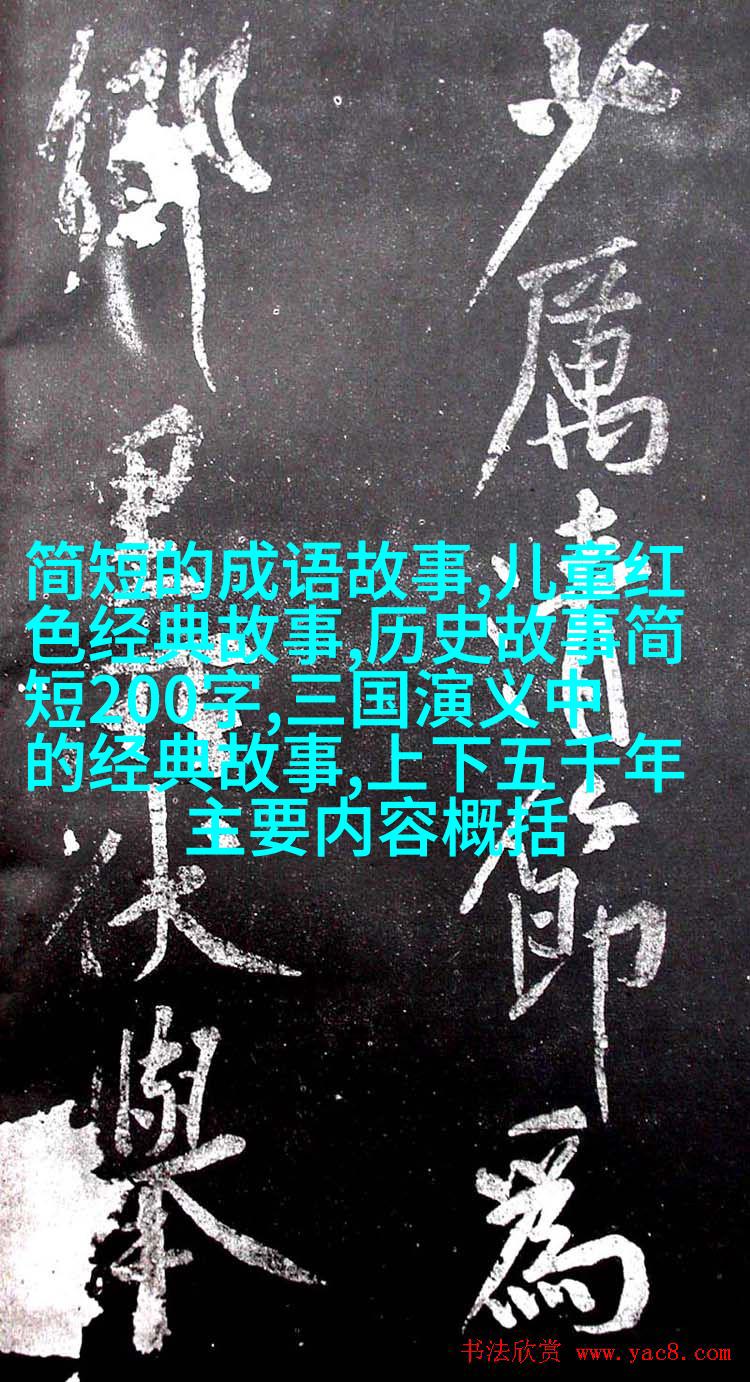 少厲清節為
鄉里伏舉
简短的成语故事,儿童红
色经典故事,历史故事简
短200字,三国演义中
的经典故事,上下五千年
主要内容概括
书法欣赏 www.yac8.com